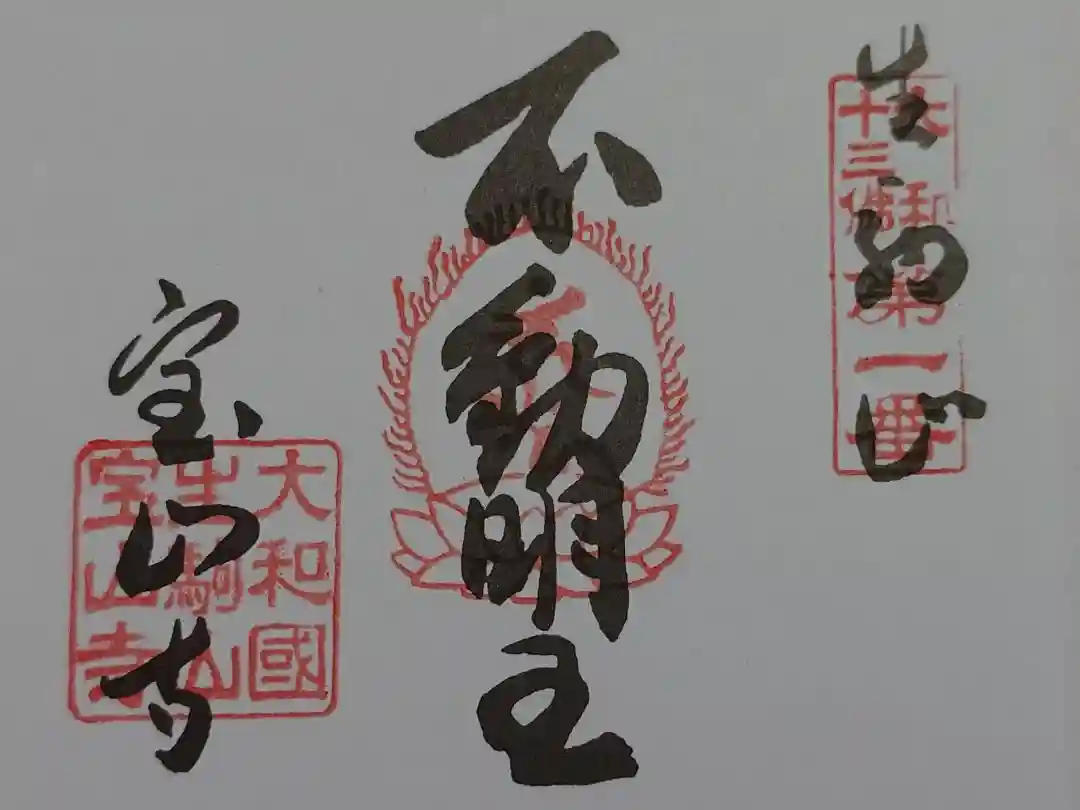 生駒山
大和
十三佛
第一番
不動明王
宝山寺
大和國
生駒山
宝山寺